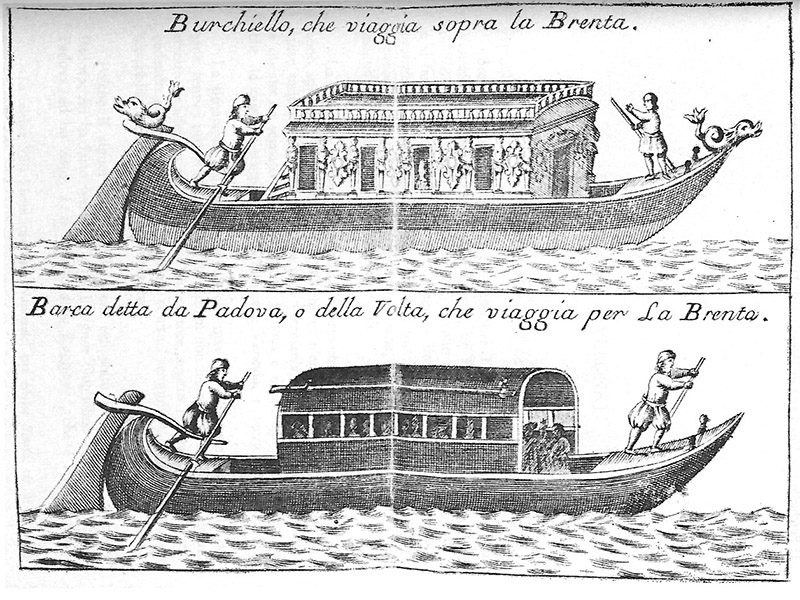 Burchiello, che viaggia sopra la Brenta.
Barca detta da Padova, o della Volta, che viaggia per La Brenta.